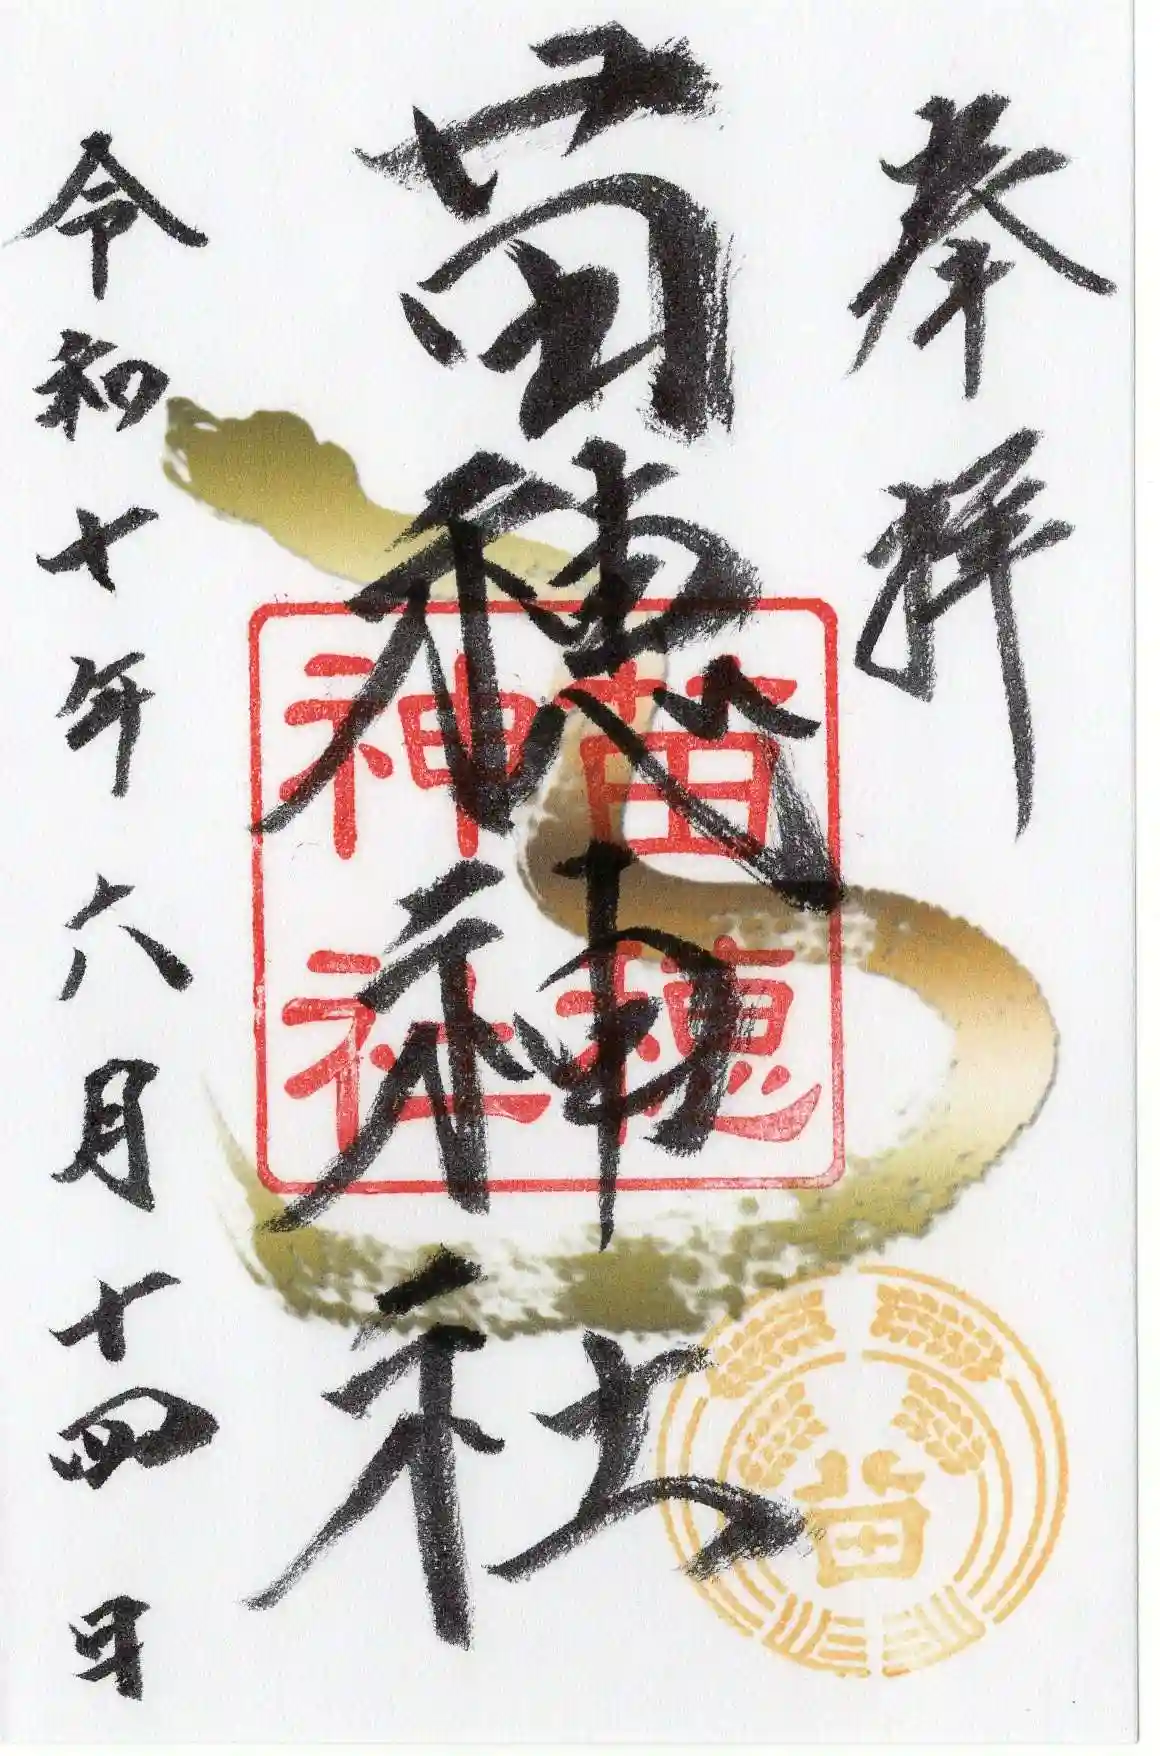 奉拝
苗穂神社
苗穂
神社
苗
令和七年六月十四日